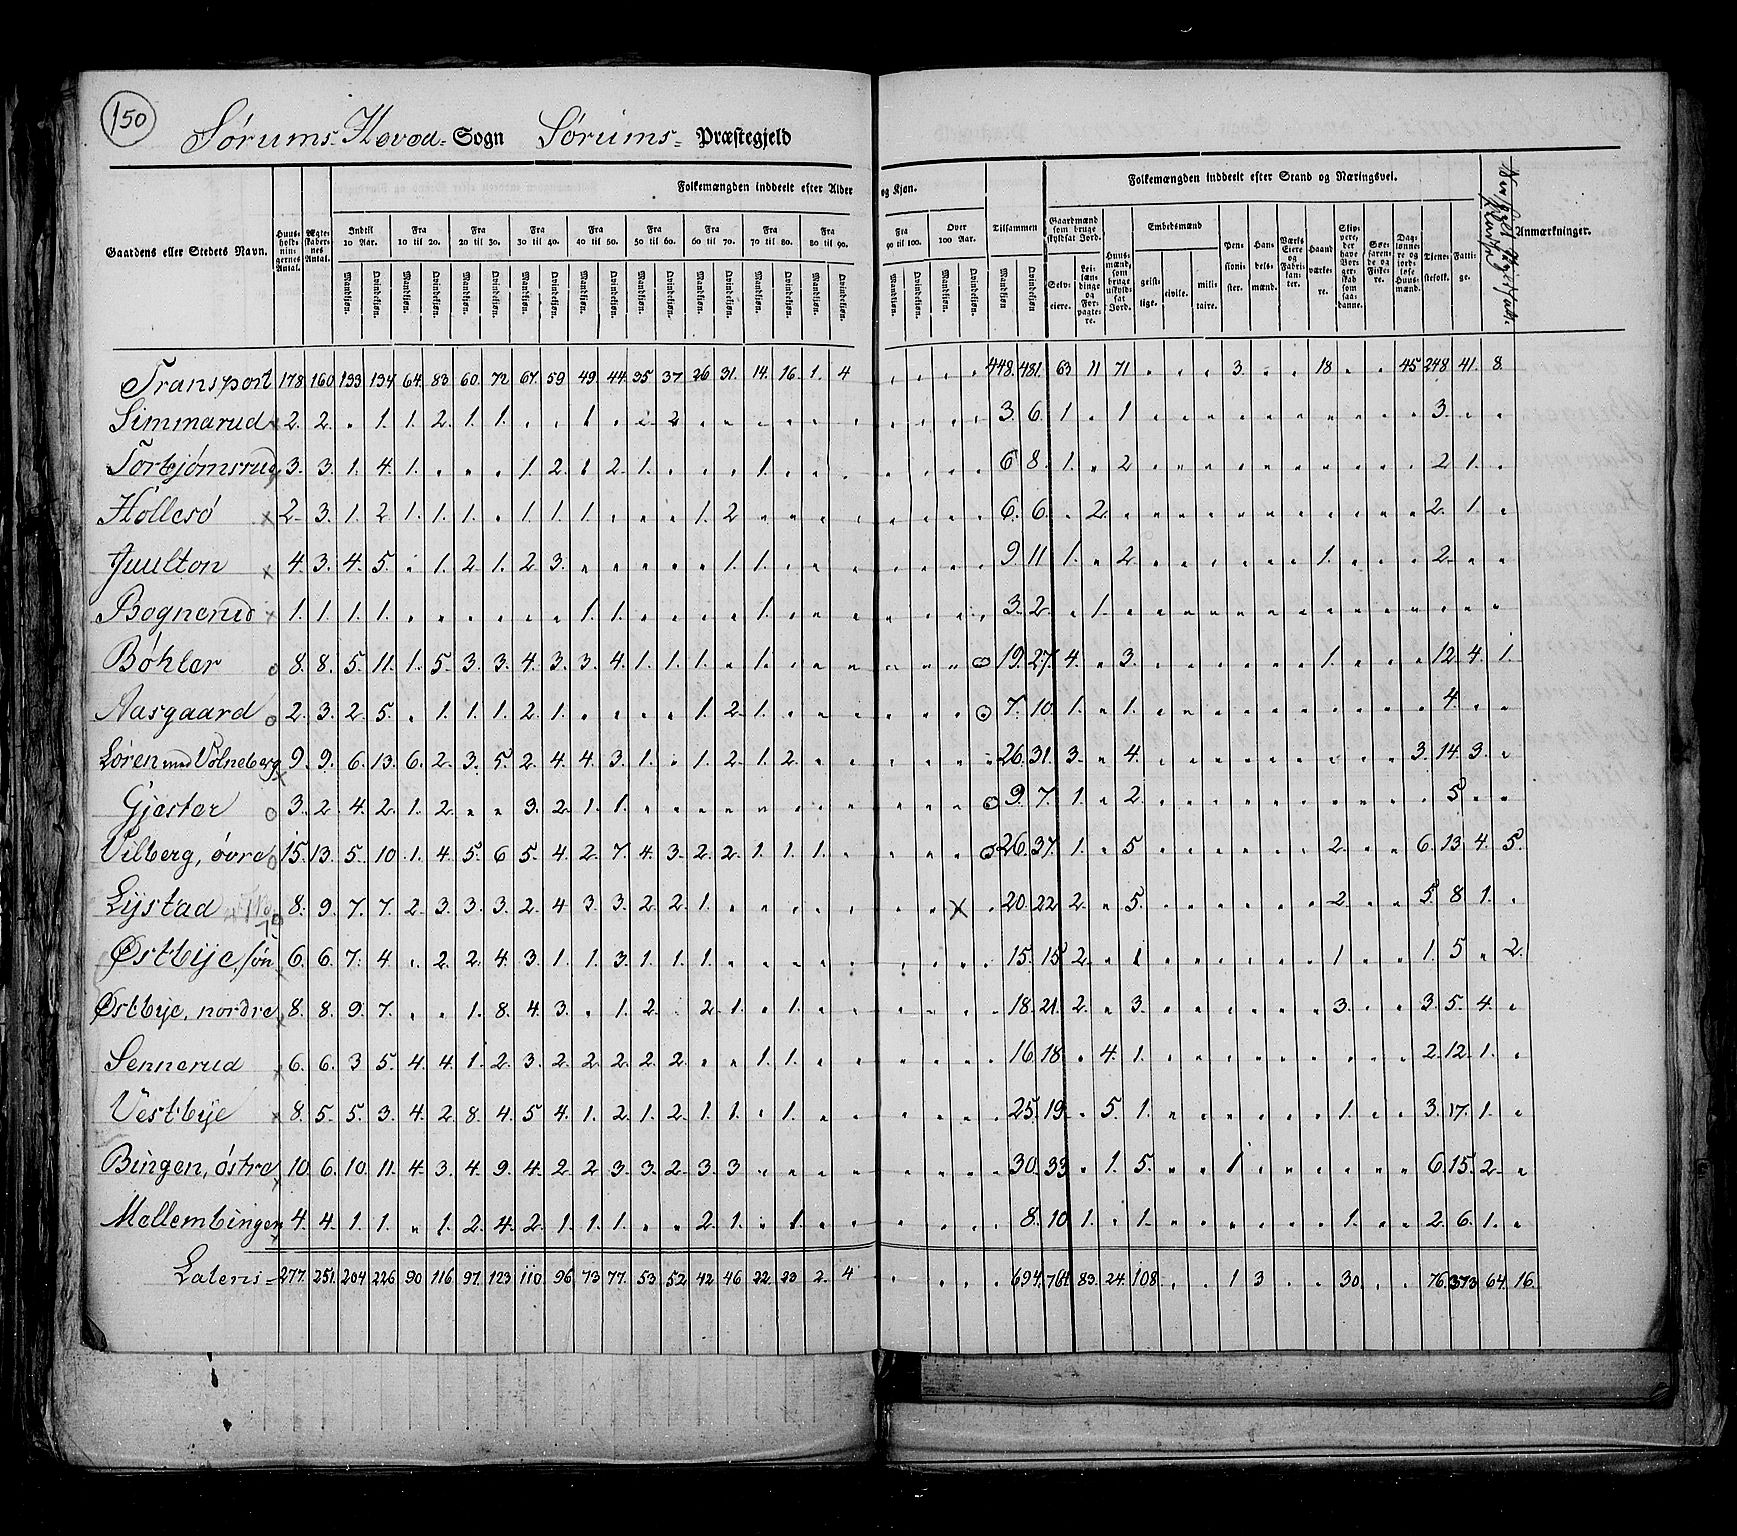 150
Sørums Hoved- Sogn Sørums- Præstegjeld
Folkemængden inddeelt efter Alder og Kjøn.
Folkemængden inddeelt efter Stand og Næringsvei.
Gaardens eller Stedets Navn.
Huusholdningernes Antal.
Ægteskabernes Antal.
Indtil 10 Aar. Fra 10 til 20. Fra 20 til 30. Fra 30 til 40. Fra 40 til 50. Fra 50 til 60. Fra 60 til 70. Fra 70 til 80. Fra 80 til 90. Fra 90 til 100. Over 100 Aar. Tilsammen
Mandkjøn. Qvindekjøn.
Gaardmænd som bruge skyldsat Jord.
Selveiere.
Leilændinge og Forpagtere.
Huusmænd, som bruge uskyldsat Jord.
Embedsmænd
geistlige. civile. militaire.
Pensionister.
Handelsmænd.
Værks Eiere og Fabrikanter.
Haandværkere.
Skippere, der have Borgerskab som saadanne.
Søefarende og Fiskere.
Daglønnere og jordløse Huusmænd.
Tjenestefolk.
Fattige.
Anmærkninger.
Transport 178 160 133 134 64. 83 60. 72 67. 59 49. 44 35 37 26 31. 14. 16. 1. 4 448. 481. 63 11 71 3. 18 45 248 41. 8.
Simmarud 2. 2. 1. 1. 2. 1. 1. 1. 2. 3. 6. 1. 1. 3.
Torbjørnsrud 3. 3. 1. 4. 1. 1. 2. 1 2. 1. 1. 6 8. 1. 2. 2. 1.
Hollesø 2. 3. 1. 2 1. 1. 1. 1. 1. 1. 1. 2 6. 6. 2. 2. 1.
Juulton 4. 3. 4. 5 1. 2. 1. 2. 3. 1. 1. 9. 11 1. 2. 1. 2.
Bognerud 1. 1. 1. 1. 1. 1. 1. 3. 2. 1.
Bøhler 8. 8. 5. 11. 1. 5. 3. 3. 4. 3. 3. 4. 1. 1. 1. 1. 19. 27. 4. 3. 1. 12. 4. 1.
Aasgaard 2. 3. 2. 5. 1. 1. 1. 2. 1. 1. 2. 1. 7. 10. 1. 1. 4.
Løren med Vølneberg 9. 9. 6. 13. 6. 2. 3. 5. 2. 4. 4. 3. 1. 1. 2. 1. 2. 26. 31. 3. 4. 3. 14. 3.
Gjester 3. 2. 4. 2. 1. 2. 3. 2. 1. 1. 9. 7. 1. 2. 5.
Vilberg, øvre 15. 13. 5. 10. 1. 4. 5. 6 5. 4. 2. 7. 4. 3. 2. 2. 1. 1. 1. 26. 37. 1. 5. 2. 6. 13. 4. 5.
Lystad 8. 9. 7. 7. 2. 3. 3. 3. 2. 4 3. 3. 2. 2. 1. 20. 22. 2. 5. 2. 5. 8. 1.
Østbye, søn 6. 6. 7. 4. 2. 2. 4. 3. 1. 1. 3. 1. 1. 1. 15. 15. 2. 1 1. 1. 5. 2.
Østbye, nordre 8. 8. 9. 7. 1. 8. 4. 3. 1. 2. 2. 1. 1. 18. 21. 2. 3. 3. 3. 5. 4.
Sennerud 6. 6. 3 5. 4. 4. 1. 2. 3. 2. 2. 2. 2. 2. 1. 1. 16. 18. 4. 1. 2. 12. 1.
Vestbye 8. 5. 5. 3. 4. 2. 8. 4. 5. 4. 1. 2. 1. 2. 1. 1. 1. 25. 19. 5. 1. 1. 3. 17. 1.
Bingen, østre 10. 6. 10. 11. 4. 3. 4. 9. 4. 2. 2. 3. 3. 2. 3. 3. 30. 33. 1. 5. 1 6. 15. 2.
Mellembingen 4. 4. 1. 1. 1. 2. 4. 2. 1. 1. 1. 2. 1. 1. 8. 10. 1. 1. 1. 2. 6. 1.
Lateris 277. 251. 204 226 90 116 97. 123 110. 96 73 77. 53. 52. 42. 46 22. 23 2. 4 694. 764. 83. 24. 108. 1 3 30. 76. 373 64. 16.